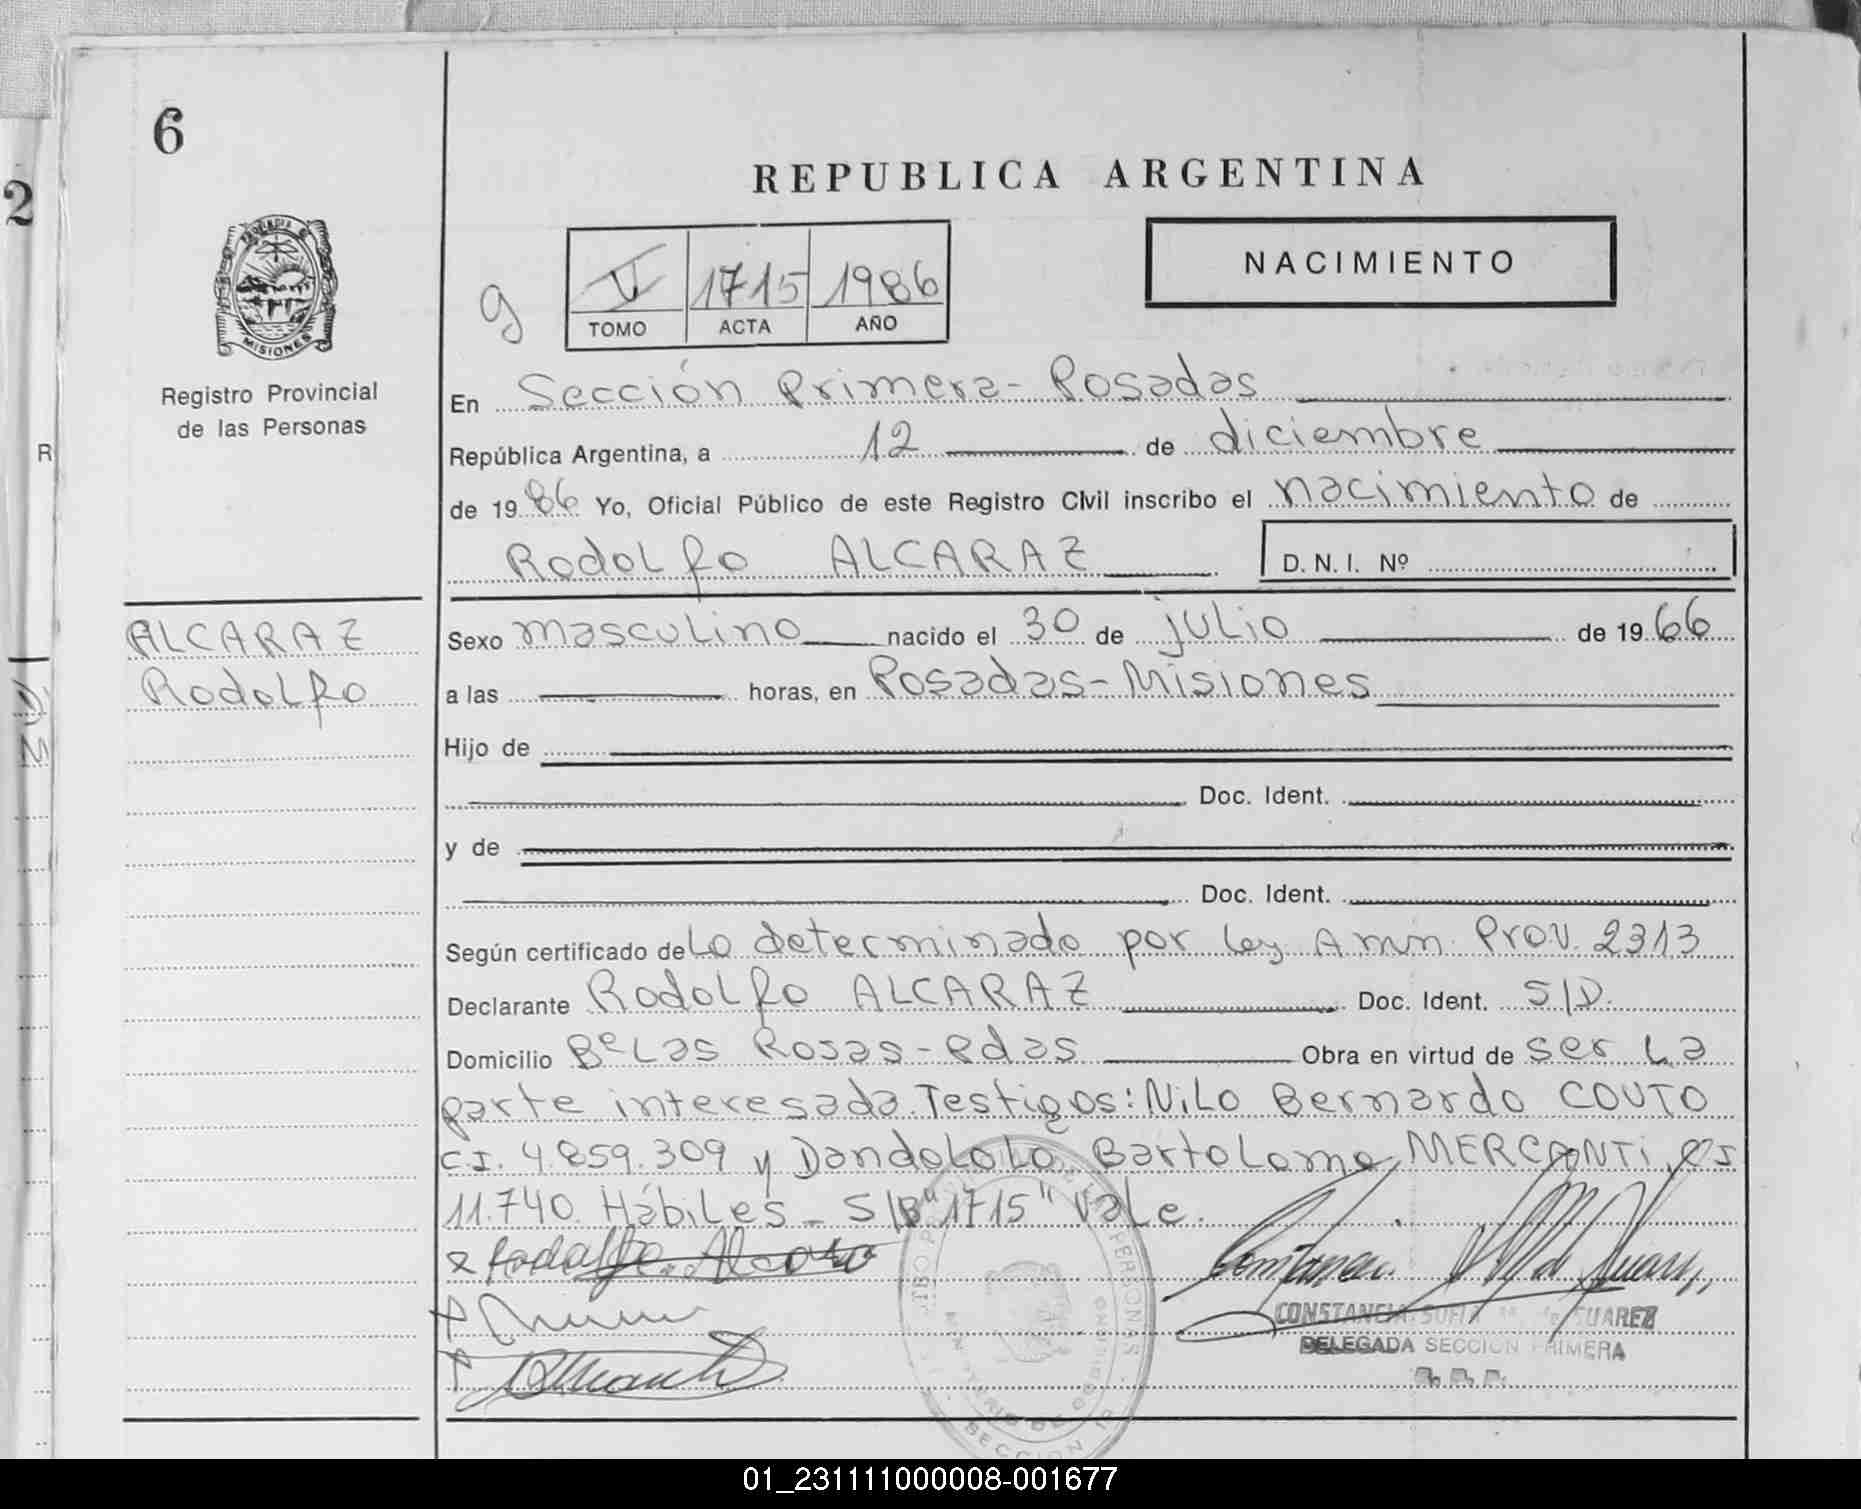 6
2
REPUBLICA ARGENTINA
NACIMIENTO
g V 1715 1986
TOMO ACTA AÑO
MISIONES
Registro Provincial
de las Personas
R
En Sección Primera - Posadas
República Argentina, a 12 de diciembre
de 1986 Yo, Oficial Público de este Registro Civil inscribo el nacimiento de
Rodolfo ALCARAZ D.N.I. Nº
ALCARAZ
Rodolfo
Sexo masculino nacido el 30 de julio de 1966
a las horas, en Posadas - Misiones
Hijo de
Doc. Ident.
y de
Doc. Ident.
Según certificado de Lo determinado por Ley Amn. Prov. 2313
Declarante Rodolfo ALCARAZ Doc. Ident. S/D.
Domicilio Bº Las Rosas - Pdas Obra en virtud de ser la
parte interesada. Testigos: Nilo Bernardo COUTO
C.I. 4.859.309 y Dandolo Bartolome MERCANTI CI
11.740. Hábiles - S/B "1715" Vale.
x Rodolfo Alcaraz
CONSTANCIA SOFIA de SUAREZ
DELEGADA SECCION PRIMERA
01_231111000008-001677